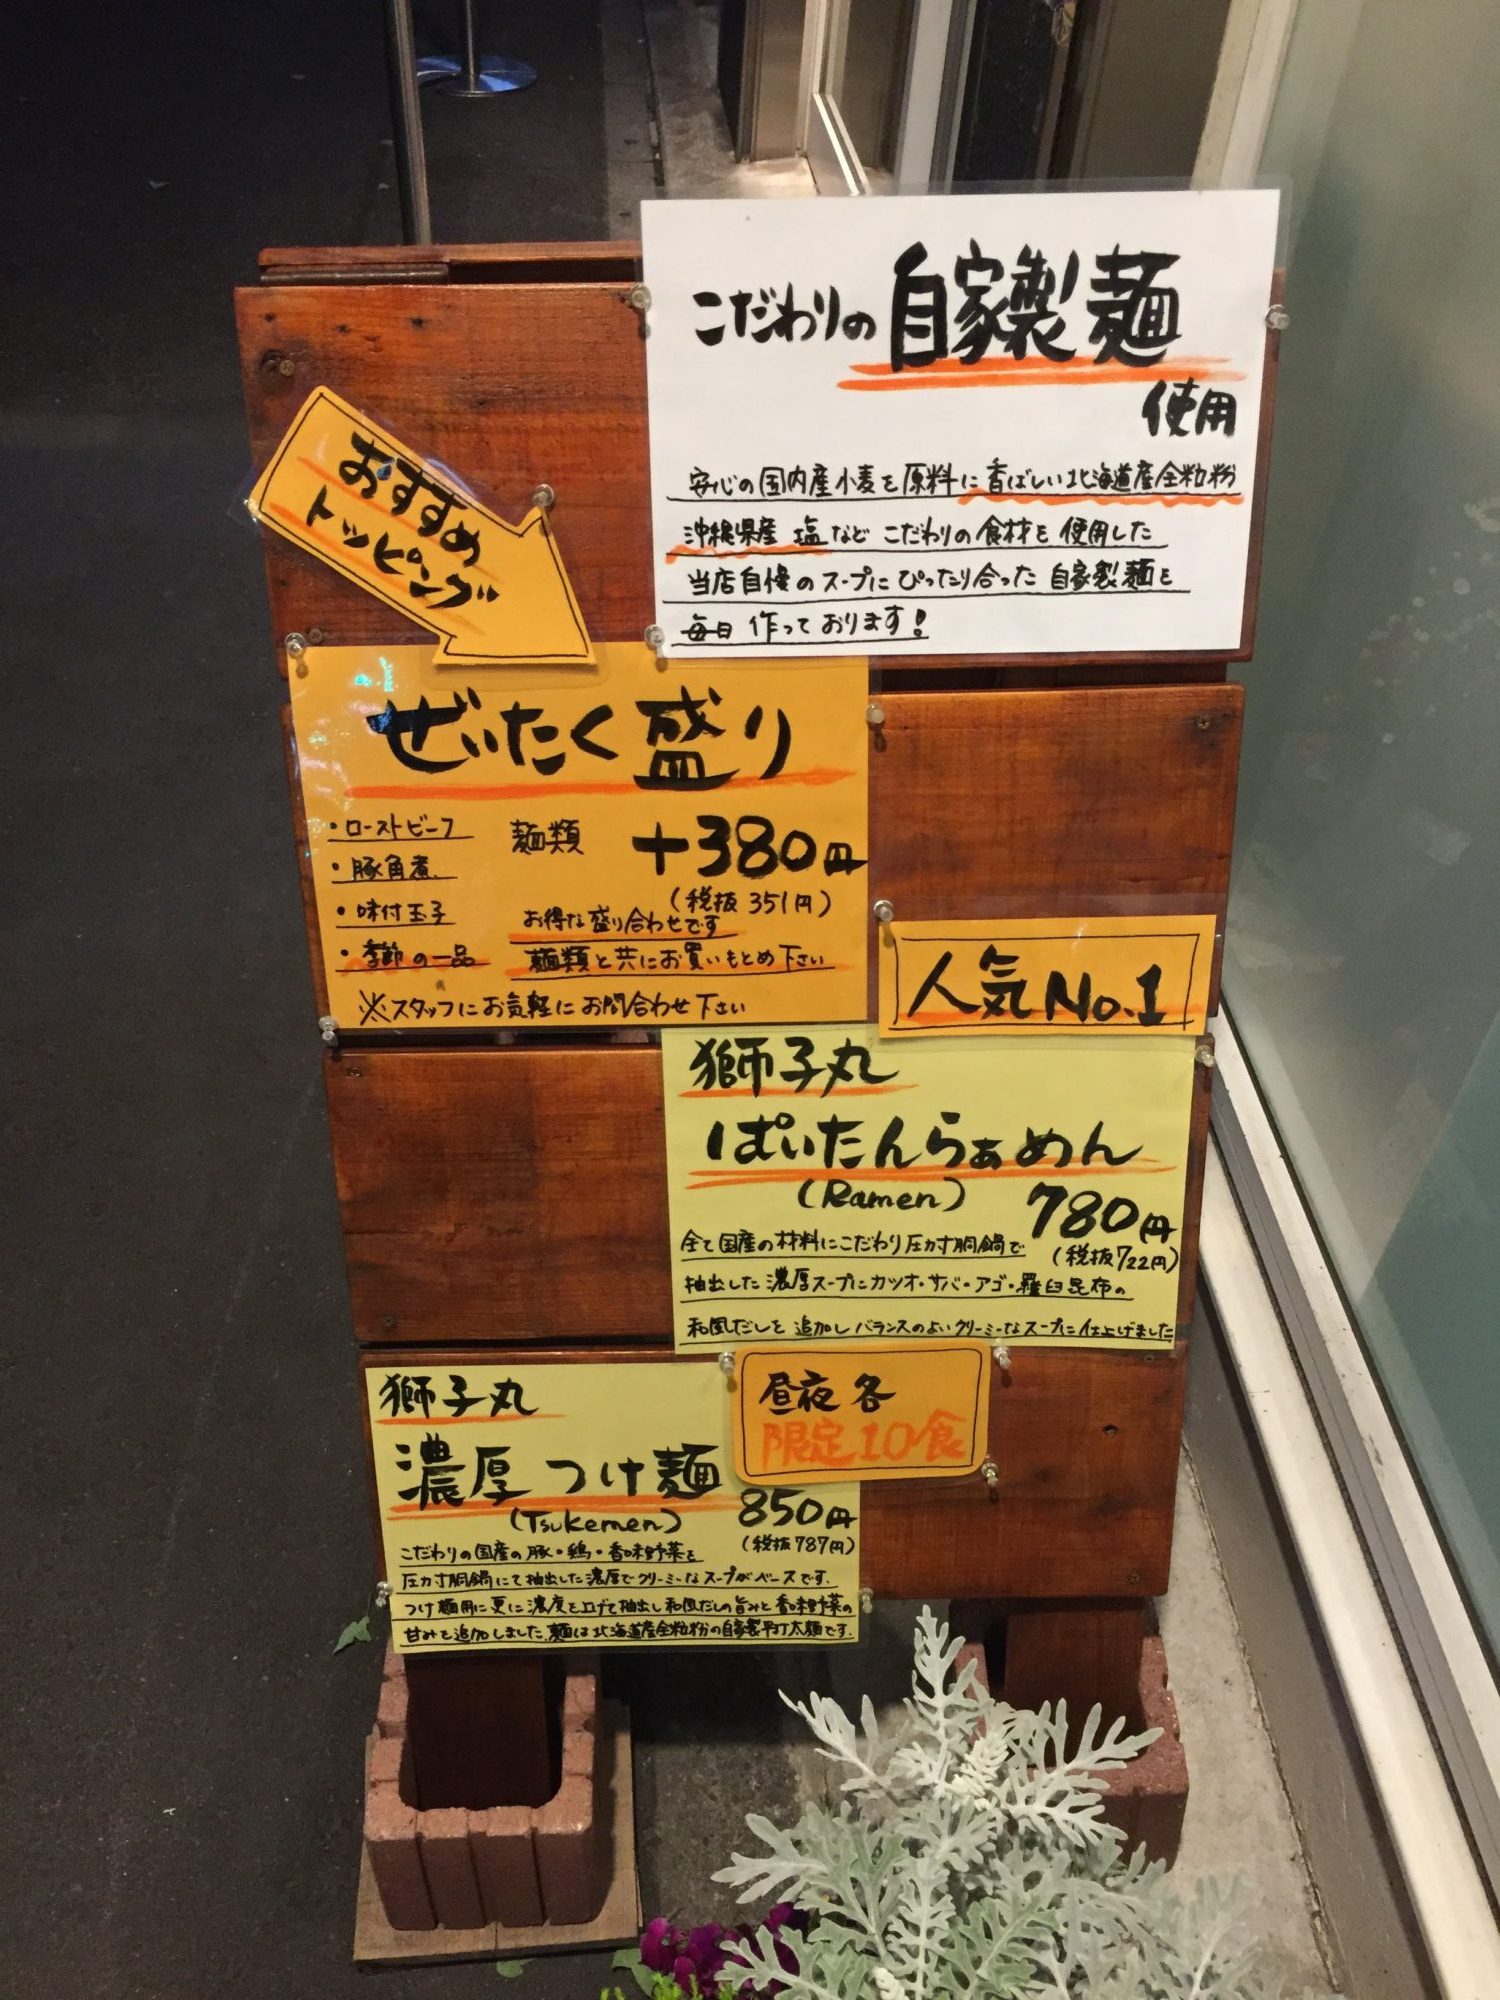 こだわりの自家製麺
使用
安心の国内産小麦を原料に香ばしい北海道産全粒粉
沖縄県産 塩など こだわりの食材を使用した
当店自慢のスープにぴったり合った自家製麺を
毎日作っております!
おすすめ
トッピング
ぜいたく盛り
・ローストビーフ
・豚角煮
・味付玉子
・季節の一品
麺類 +380円
(税抜351円)
お得な盛り合わせです
麺類と共にお買いもとめ下さい
※スタッフにお気軽にお問合わせ下さい
人気No.1
獅子丸
ぱいたんらぁめん
(Ramen) 780円
(税抜722円)
全て国産の材料にこだわり圧力寸胴鍋で
抽出した濃厚スープにカツオ・サバ・アゴ・羅臼昆布の
和風だしを追加しバランスのよいクリーミーなスープに仕上げました
昼夜各
限定10食
獅子丸
濃厚つけ麺
(Tsukemen) 850円
(税抜787円)
こだわりの国産の豚・鶏・香味野菜を
圧力寸胴鍋にて抽出した濃厚でクリーミーなスープがベースです.
つけ麺用に更に濃度を上げて抽出し和風だしの旨みと香味野菜の
甘みを追加しました.麺は北海道産全粒粉の自家製平打太麺です.